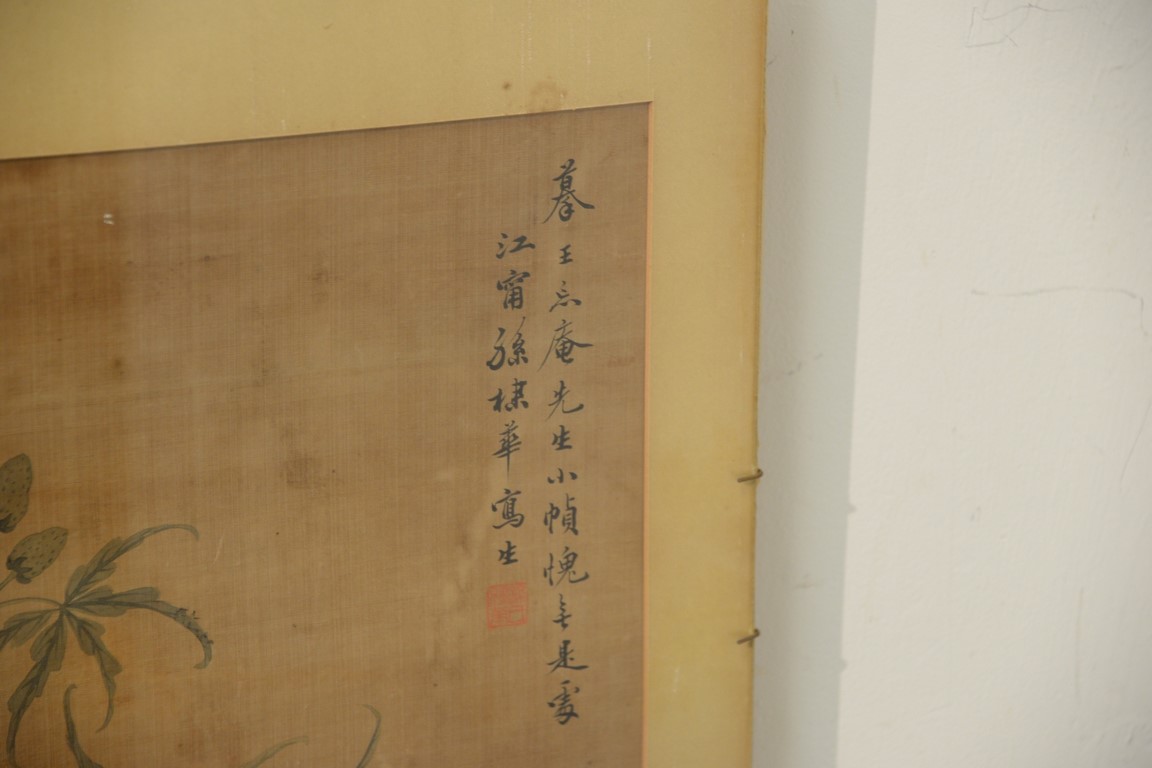 摹王忘庵先生小幀愧無是處
江甯孫棣華寫生